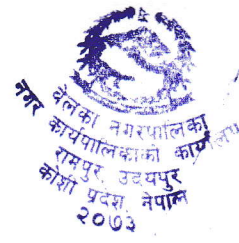 वेलका नगरपालिका
नगर कार्यपालिकाको कार्यालय
रामपुर, उदयपुर
कोशी प्रदेश, नेपाल
२०७३